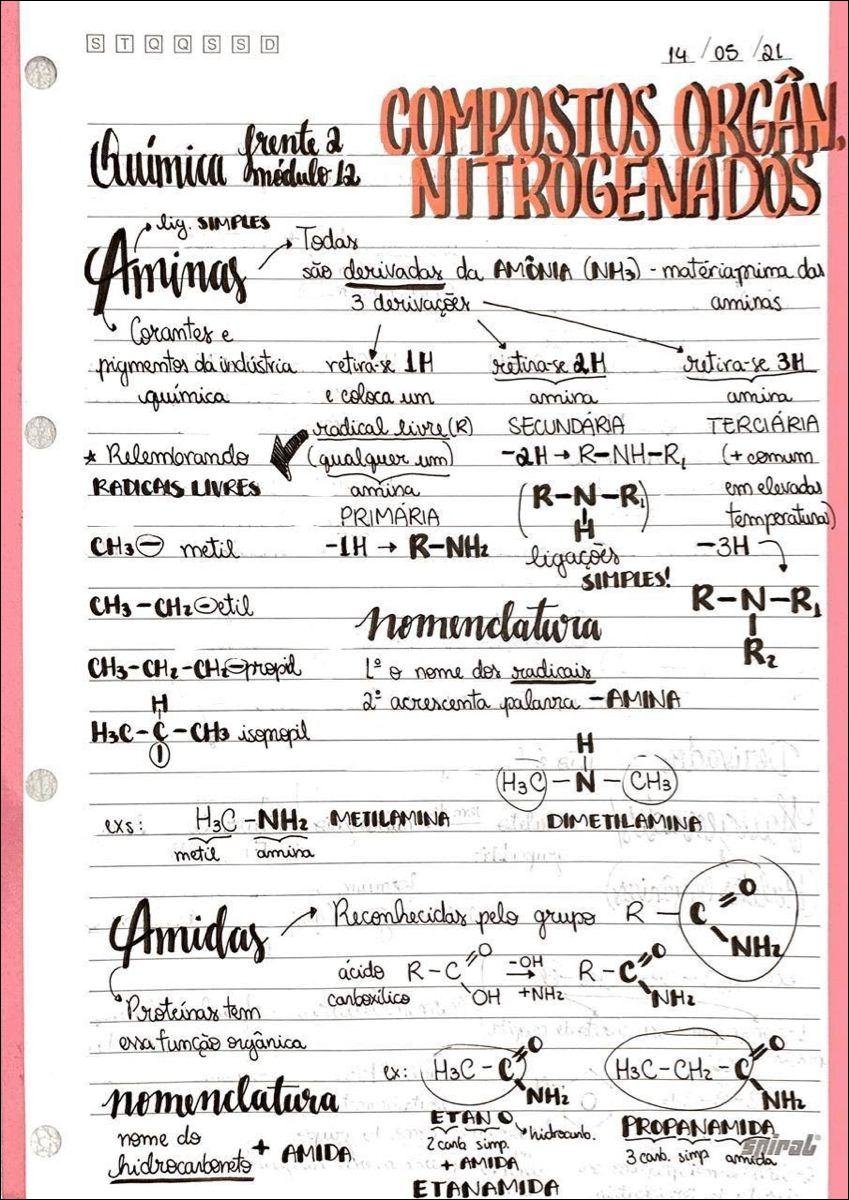 S T Q Q S S D
14 / 05 / 21
COMPOSTOS ORGÂN.
NITROGENADOS
Química frente 2
módulo 12
lig. SIMPLES
Aminas
Todas
são derivadas da AMÔNIA (NH3) - matéria prima das
aminas
3 derivações
Corantes e
pigmentos da indústria
química
retira-se 1H
e coloca um
radical livre (R)
(qualquer um)
amina
PRIMÁRIA
-1H → R-NH2
retira-se 2H
amina
SECUNDÁRIA
-2H → R-NH-R1
(R-N-R1)
H
ligações
SIMPLES!
retira-se 3H
amina
TERCIÁRIA
(+ comum
em elevadas
temperatura)
-3H
R-N-R1
R2
* Relembrando
RADICAIS LIVRES
CH3- metil
CH3-CH2- etil
CH3-CH2-CH2- propil
H
H3C-C-CH3 isopropil
nomenclatura
1º o nome dos radicais
2º acrescenta palavra -AMINA
exs:
H3C-NH2 METILAMINA
metil amina
H
H3C-N-CH3
DIMETILAMINA
Amidas
Reconhecidas pelo grupo R-C=O
NH2
Proteínas tem
essa função orgânica
ácido
carboxílico
R-C=O
OH
-OH
→
+NH2
R-C=O
NH2
nomenclatura
nome do
hidrocarboneto + AMIDA
ex: H3C-C=O
NH2
ETANO
2 carb. simp. hidrocarb.
+ AMIDA
ETANAMIDA
H3C-CH2-C=O
NH2
PROPANAMIDA
3 carb. simp amida
spiral